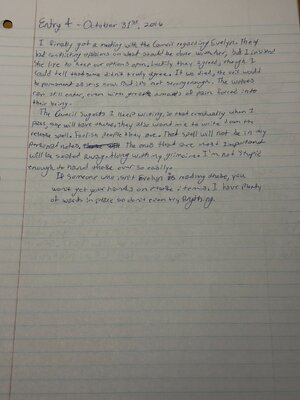 Entry 4 - October 31st, 2016
I finally got a meeting with the Council regarding Evelyn. They
had conflicting opinions on what should be done with her, but I insisted
I'd like to keep our options open. Luckily they agreed, though I
could tell that some didn't truly agree. If we died, the veil would
be permanent as it is now. But it's not strong enough. The wolves
can still enter, even with great amounts of pain forced into
their being.
The Council suggests I keep writing, so that eventually when I
pass, they will have these. They also want me to write down the
release spell. Foolish people they are. That spell will not be in my
personal notes. The ones that are most important
will be sealed away along with my grimoire. I'm not stupid
enough to hand those over so easily.
If someone who isn't Evelyn is reading these, you
wont get your hands on those items. I have plenty
of wards in place so don't even try anything.